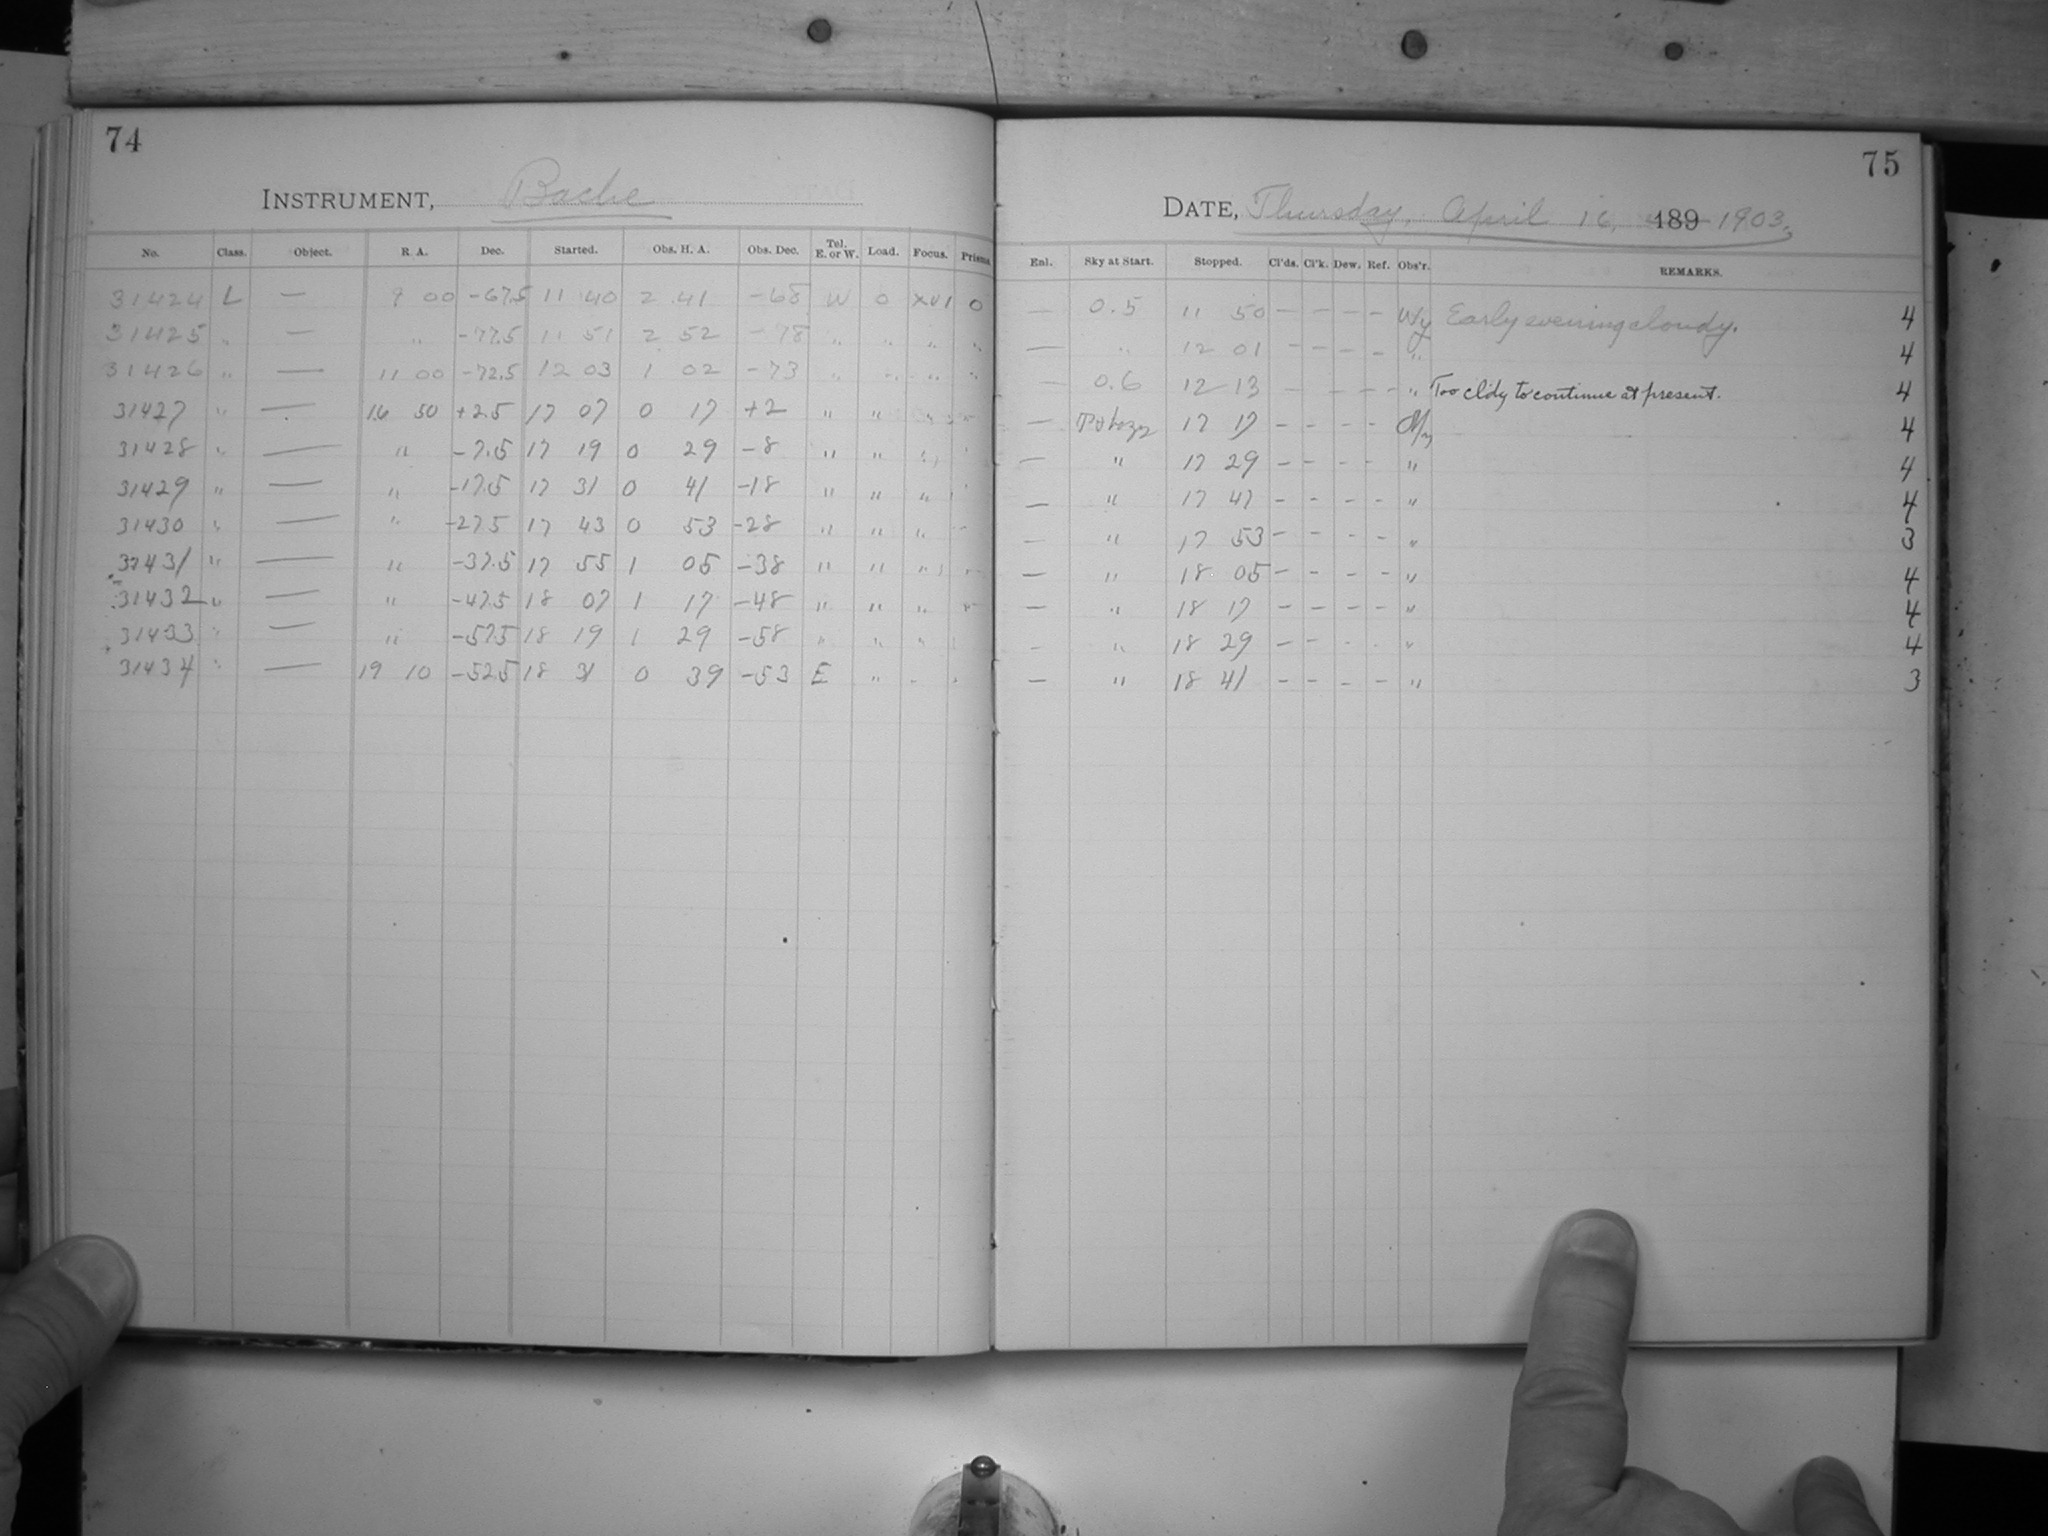 74
INSTRUMENT, Bache
No. Class. Object. R. A. Dec. Started. Obs. H. A. Obs. Dec. Tel. E. or W. Load. Focus. Prisms
31424 L — 9 00 -67.5 11 40 2 41 -68 W 0 XVI 0
31425 " — " -77.5 11 51 2 52 -78 " " " "
31426 " — 11 00 -72.5 12 03 1 02 -73 " " " "
31427 " — 16 50 +2.5 17 07 0 17 +2 " " "
31428 " — " -7.5 17 19 0 29 -8 " " "
31429 " — " -17.5 17 31 0 41 -18 " " "
31430 " — " -27.5 17 43 0 53 -28 " " "
31431 " — " -37.5 17 55 1 05 -38 " " "
31432 " — " -47.5 18 07 1 17 -48 " " " "
31433 " — " -57.5 18 19 1 29 -58 " " "
31434 " — 19 10 -52.5 18 31 0 39 -53 E " " "
75
DATE, Thursday, April 16, 189 1903.
Enl. Sky at Start. Stopped. Cl'ds. Cl'k. Dew. Ref. Obs'r. REMARKS.
— 0.5 11 50 — — — — Wy Early evening cloudy. 4
— " 12 01 — — — — " 4
— 0.6 12 13 — — — — " Too cldy to continue at present. 4
— 17 17 — — — — 4
— " 17 29 — — — — " 4
— " 17 41 — — — — " 4
— " 17 53 — — — — " 3
— " 18 05 — — — — " 4
— " 18 17 — — — — " 4
— " 18 29 — — — — " 4
— " 18 41 — — — — " 3